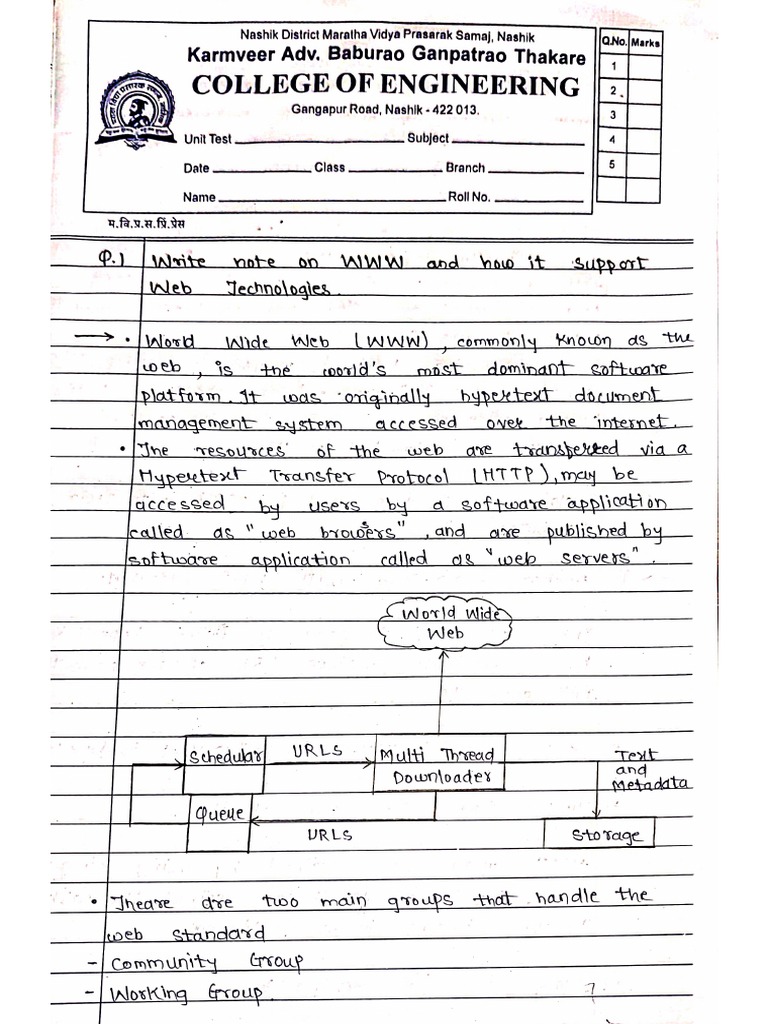 Nashik District Maratha Vidya Prasarak Samaj, Nashik
Karmveer Adv. Baburao Ganpatrao Thakare
COLLEGE OF ENGINEERING
Gangapur Road, Nashik - 422 013.
Unit Test Subject
Date Class Branch
Name Roll No.
Q.No. Marks
1
2
3
4
5
म.वि.प्र.स.प्रिं.प्रेस
Q.1 Write note on WWW and how it support
Web Technologies.
→ • World Wide Web (WWW), commonly known as the
web, is the world's most dominant software
platform. It was originally hypertext document
management system accessed over the internet.
• The resources of the web are transferred via a
Hypertext Transfer Protocol (HTTP), may be
accessed by users by a software application
called as "web browsers", and are published by
software application called as "web servers".
World Wide
Web
Schedular URLS Multi Thread
Downloader
Text
and
Metadata
Queue
URLS
Storage
• Theare are two main groups that handle the
web standard
- Community Group
- Working Group.